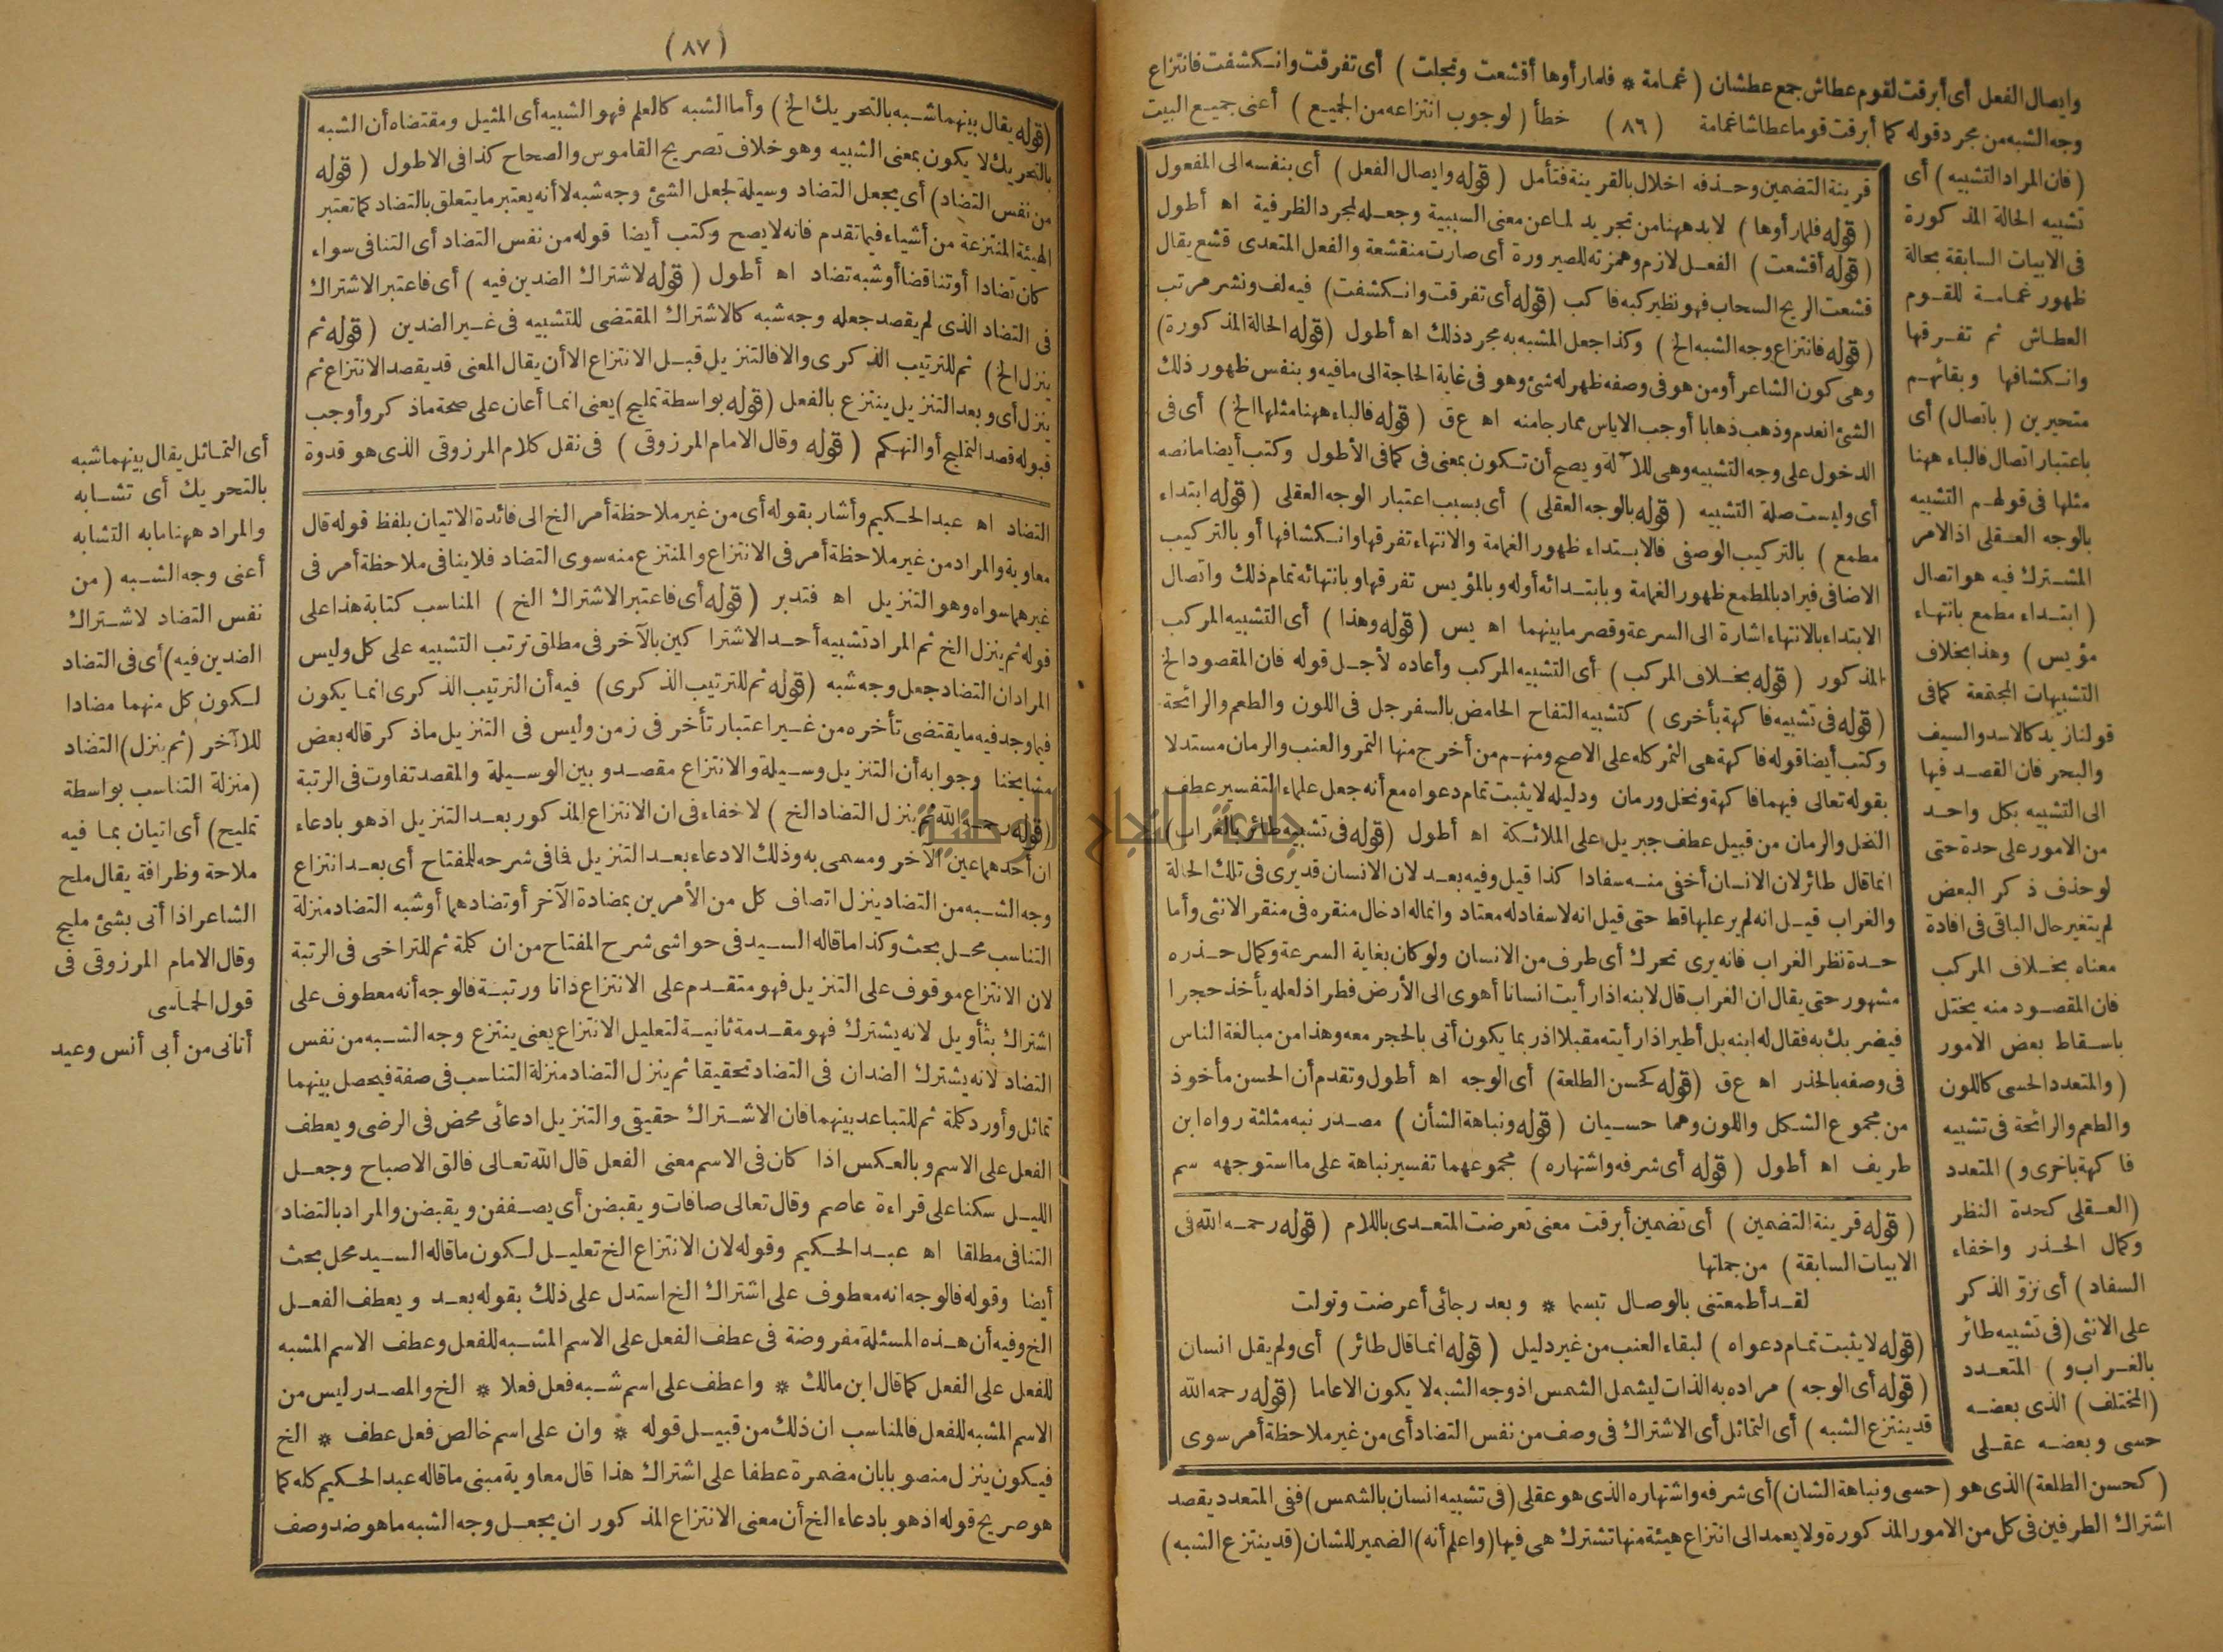 وايصال الفعل أى أبرقت لقوم عطاش جمع عطشان (غمامة * فلما رأوها أقشعت وتجلت) أى تفرقت وانكشفت فانتزاع
وجه الشبه من مجرد قوله كما أبرقت قوما عطاشا غمامة (٨٦) خطأ (لوجوب انتزاعه من الجميع) أعنى جميع البيت
(فان المراد التشبيه) أى
تشبيه الحالة المذكورة
فى الابيات السابقة بحالة
ظهور غمامة للقوم
العطاش ثم تفرقها
وانكشافها وبقائهم
متحيرين (باتصال) أى
باعتبار اتصال فالباء ههنا
مثلها فى قولهم التشبيه
بالوجه العقلى اذ الامر
المشترك فيه هو اتصال
(ابتداء مطمع بانتهاء
مؤيس) وهذا بخلاف
التشبيهات المجتمعة كما فى
قولنا زيد كالاسد والسيف
والبحر فان القصد فيها
الى التشبيه بكل واحد
من الامور على حدة حتى
لو حذف ذكر البعض
لم يتغير حال الباقى فى افادة
معناه بخلاف المركب
فان المقصود منه يختل
باسقاط بعض الامور
(والمتعدد الحسى كاللون
والطعم والرائحة فى تشبيه
فاكهة باخرى و) المتعدد
(العقلى كحدة النظر
وكمال الحذر واخفاء
السفاد) أى نزو الذكر
على الانثى (فى تشبيه طائر
بالغراب و) المتعدد
(المختلف) الذى بعضه
حسى وبعضه عقلى
قرينة التضمين وحذفه اخلال بالقرينة فتأمل (قوله وايصال الفعل) أى بنفسه الى المفعول
(قوله فلما رأوها) لابد ههنا من تجريد لما عن معنى السببية وجعله لمجرد الظرفية اه أطول
(قوله أقشعت) الفعل لازم وهمزته للصيرورة أى صارت منقشعة والفعل المتعدى قشع يقال
قشعت الريح السحاب فهو نظير كبه فاكب (قوله أى تفرقت وانكشفت) فيه لف ونشر مرتب
(قوله فانتزاع وجه الشبه الخ) وكذا جعل المشبه به مجرد ذلك اه أطول (قوله الحالة المذكورة)
وهى كون الشاعر أو من هو فى وصفه ظهر له شئ وهو فى غاية الحاجة الى ما فيه وبنفس ظهور ذلك
الشئ انعدم وذهب ذهابا أوجب الاياس مما رجا منه اه ع ق (قوله فالباء ههنا مثلها الخ) أى فى
الدخول على وجه التشبيه وهى للآلة ويصح أن تكون بمعنى فى كما فى الأطول وكتب أيضا ما نصه
أى وليست صلة التشبيه (قوله بالوجه العقلى) أى بسبب اعتبار الوجه العقلى (قوله ابتداء
مطمع) بالتركيب الوصفى فالابتداء ظهور الغمامة والانتهاء تفرقها وانكشافها أو بالتركيب
الاضافى فيراد بالمطمع ظهور الغمامة وبابتدائه أوله وبالمؤيس تفرقها وبانتهائه تمام ذلك واتصال
الابتداء بالانتهاء اشارة الى السرعة وقصر ما بينهما اه يس (قوله وهذا) أى التشبيه المركب
المذكور (قوله بخلاف المركب) أى التشبيه المركب وأعاده لأجل قوله فان المقصود الخ
(قوله فى تشبيه فاكهة بأخرى) كتشبيه التفاح الحامض بالسفرجل فى اللون والطعم والرائحة
وكتب أيضا قوله فاكهة هى الثمر كله على الاصح ومنهم من أخرج منها التمر والعنب والرمان مستدلا
بقوله تعالى فيهما فاكهة ونخل ورمان ودليله لا يثبت تمام دعواه مع أنه جعل علماء التفسير عطف
النخل والرمان من قبيل عطف جبريل على الملائكة اه أطول (قوله فى تشبيه طائر بالغراب)
انما قال طائر لان الانسان أخفى منه سفادا كذا قيل وفيه بعد لان الانسان قد يرى فى تلك الحالة
والغراب قيل انه لم ير عليها قط حتى قيل انه لا سفاد له معتاد وانما له ادخال منقره فى منقر الانثى وأما
حدة نظر الغراب فانه يرى تحرك أى طرف من الانسان ولو كان بغاية السرعة وكمال حذره
مشهور حتى يقال ان الغراب قال لابنه اذا رأيت انسانا أهوى الى الأرض فطر اذ لعله يأخذ حجرا
فيضربك به فقال له ابنه بل أطير اذا رأيته مقبلا اذ ربما يكون أتى بالحجر معه وهذا من مبالغة الناس
فى وصفه بالحذر اه ع ق (قوله كحسن الطلعة) أى الوجه اه أطول وتقدم أن الحسن مأخوذ
من مجموع الشكل واللون وهما حسيان (قوله ونباهة الشأن) مصدر نبه مثلثة رواه ابن
طريف اه أطول (قوله أى شرفه واشتهاره) مجموعهما تفسير نباهة على ما استوجهه سم
(قوله قرينة التضمين) أى تضمين أبرقت معنى تعرضت المتعدى باللام (قوله رحمه الله فى
الابيات السابقة) من جملتها
لقد أطمعتنى بالوصال تبسما * وبعد رجائى أعرضت وتولت
(قوله لا يثبت تمام دعواه) لبقاء العنب من غير دليل (قوله انما قال طائر) أى ولم يقل انسان
(قوله أى الوجه) مراده به الذات ليشمل الشمس اذ وجه الشبه لا يكون الا عاما (قوله رحمه الله
قد ينتزع الشبه) أى التماثل أى الاشتراك فى وصف من نفس التضاد أى من غير ملاحظة أمر سوى
(كحسن الطلعة) الذى هو (حسى ونباهة الشان) أى شرفه واشتهاره الذى هو عقلى (فى تشبيه انسان بالشمس) ففى المتعدد يقصد
اشتراك الطرفين فى كل من الامور المذكورة ولا يعمد الى انتزاع هيئة منها تشترك هى فيها (واعلم أنه) الضمير للشان (قد ينتزع الشبه)
(٨٧)
(قوله يقال بينهما شبه بالتحريك الخ) وأما الشبه كالعلم فهو الشبيه أى المثيل ومقتضاه أن الشبه
بالتحريك لا يكون بمعنى الشبيه وهو خلاف تصريح القاموس والصحاح كذا فى الاطول (قوله
من نفس التضاد) أى يجعل التضاد وسيلة لجعل الشئ وجه شبه لا أنه يعتبر ما يتعلق بالتضاد كما تعتبر
الهيئة المنتزعة من أشياء فيما تقدم فانه لا يصح وكتب أيضا قوله من نفس التضاد أى التنافى سواء
كان تضادا أو تناقضا أو شبه تضاد اه أطول (قوله لاشتراك الضدين فيه) أى فاعتبر الاشتراك
فى التضاد الذى لم يقصد جعله وجه شبه كالاشتراك المقتضى للتشبيه فى غير الضدين (قوله ثم
ينزل الخ) ثم للترتيب الذكرى والا فالتنزيل قبل الانتزاع الا أن يقال المعنى قد يقصد الانتزاع ثم
ينزل أى وبعد التنزيل ينتزع بالفعل (قوله بواسطة تمليح) يعنى انما أعان على صحة ما ذكر وأوجب
قبوله قصد التمليح أو التهكم (قوله وقال الامام المرزوقى) فى نقل كلام المرزوقى الذى هو قدوة
التضاد اه عبد الحكيم وأشار بقوله أى من غير ملاحظة أمر الخ الى فائدة الاتيان بلفظ قوله قال
معاوية والمراد من غير ملاحظة أمر فى الانتزاع والمنتزع منه سوى التضاد فلا ينافى ملاحظة أمر فى
غيرهما سواه وهو التنزيل اه فتدبر (قوله أى فاعتبر الاشتراك الخ) المناسب كتابة هذا على
قوله ثم ينزل الخ ثم المراد تشبيه أحد الاشتراكين بالآخر فى مطلق ترتب التشبيه على كل وليس
المراد ان التضاد جعل وجه شبه (قوله ثم للترتيب الذكرى) فيه أن الترتيب الذكرى انما يكون
فيما وجد فيه ما يقتضى تأخره من غير اعتبار تأخر فى زمن وليس فى التنزيل ما ذكر قاله بعض
مشايخنا وجوابه أن التنزيل وسيلة والانتزاع مقصد وبين الوسيلة والمقصد تفاوت فى الرتبة
(قوله رحمه الله ثم ينزل التضاد الخ) لا خفاء فى ان الانتزاع المذكور بعد التنزيل اذ هو بادعاء
ان أحدهما عين الآخر ومسمى به وذلك الادعاء بعد التنزيل فما فى شرحه للمفتاح أى بعد انتزاع
وجه الشبه من التضاد ينزل اتصاف كل من الأمرين بمضادة الآخر أو تضادهما أو شبه التضاد منزلة
التناسب محل بحث وكذا ما قاله السيد فى حواشى شرح المفتاح من ان كلمة ثم للتراخى فى الرتبة
لان الانتزاع موقوف على التنزيل فهو متقدم على الانتزاع ذاتا ورتبة فالوجه أنه معطوف على
اشتراك بتأويل لانه يشترك فهو مقدمة ثانية لتعليل الانتزاع يعنى ينتزع وجه الشبه من نفس
التضاد لانه يشترك الضدان فى التضاد تحقيقا ثم ينزل التضاد منزلة التناسب فى صفة فيحصل بينهما
تماثل وأورد كلمة ثم للتباعد بينهما فان الاشتراك حقيقى والتنزيل ادعائى محض فى الرضى ويعطف
الفعل على الاسم وبالعكس اذا كان فى الاسم معنى الفعل قال الله تعالى فالق الاصباح وجعل
الليل سكنا على قراءة عاصم وقال تعالى صافات ويقبضن أى يصففن ويقبضن والمراد بالتضاد
التنافى مطلقا اه عبد الحكيم وقوله لان الانتزاع الخ تعليل لكون ما قاله السيد محل بحث
أيضا وقوله فالوجه انه معطوف على اشتراك الخ استدل على ذلك بقوله بعد ويعطف الفعل
الخ وفيه أن هذه المسئلة مفروضة فى عطف الفعل على الاسم المشبه للفعل وعطف الاسم المشبه
للفعل على الفعل كما قال ابن مالك * واعطف على اسم شبه فعل فعلا * الخ والمصدر ليس من
الاسم المشبه للفعل فالمناسب ان ذلك من قبيل قوله * وان على اسم خالص فعل عطف * الخ
فيكون ينزل منصوبا بان مضمرة عطفا على اشتراك هذا قال معاوية مبنى ما قاله عبد الحكيم كله كما
هو صريح قوله اذ هو بادعاء الخ أن معنى الانتزاع المذكور ان يجعل وجه الشبه ما هو ضد وصف
أى التماثل يقال بينهما شبه
بالتحريك أى تشابه
والمراد ههنا ما به التشابه
أعنى وجه الشبه (من
نفس التضاد لاشتراك
الضدين فيه) أى فى التضاد
لكون كل منهما مضادا
للآخر (ثم ينزل) التضاد
(منزلة التناسب بواسطة
تمليح) أى اتيان بما فيه
ملاحة وظرافة يقال ملح
الشاعر اذا أتى بشئ مليح
وقال الامام المرزوقى فى
قول الحماسى
أتانى من أبى أنس وعيد
جامعة النجاح الوطنية